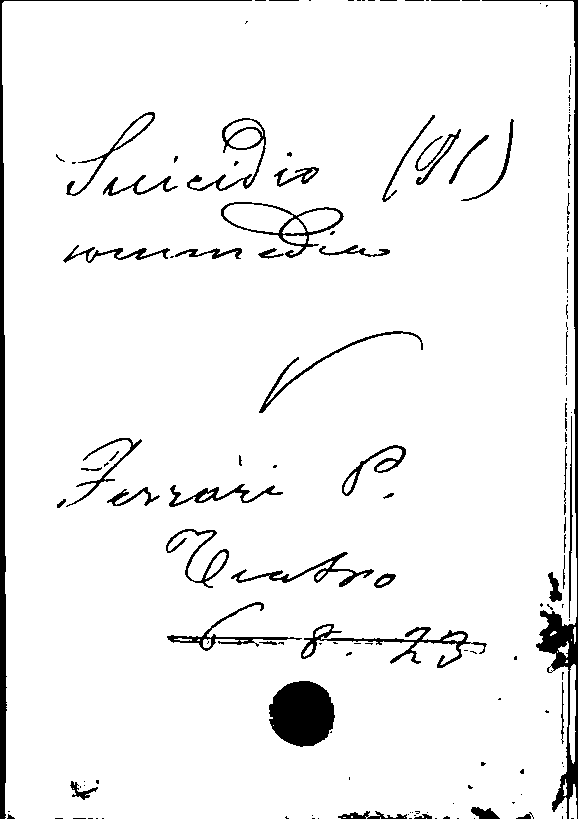 Suicidio (Il)
commedia
V
Ferrari P.
Teatro
6. 8. 23